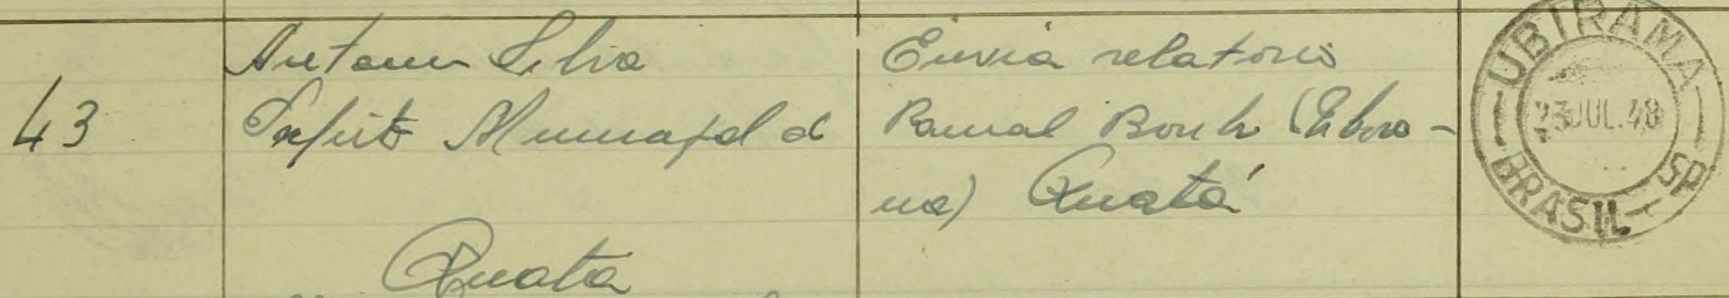 43
Antonio Silva
Prefeito Municipal d
Quatá
Envia relatorio
Ramal Bonito
na) Quatá
UBIRAMA
23 JUL. 48
BRASIL SP